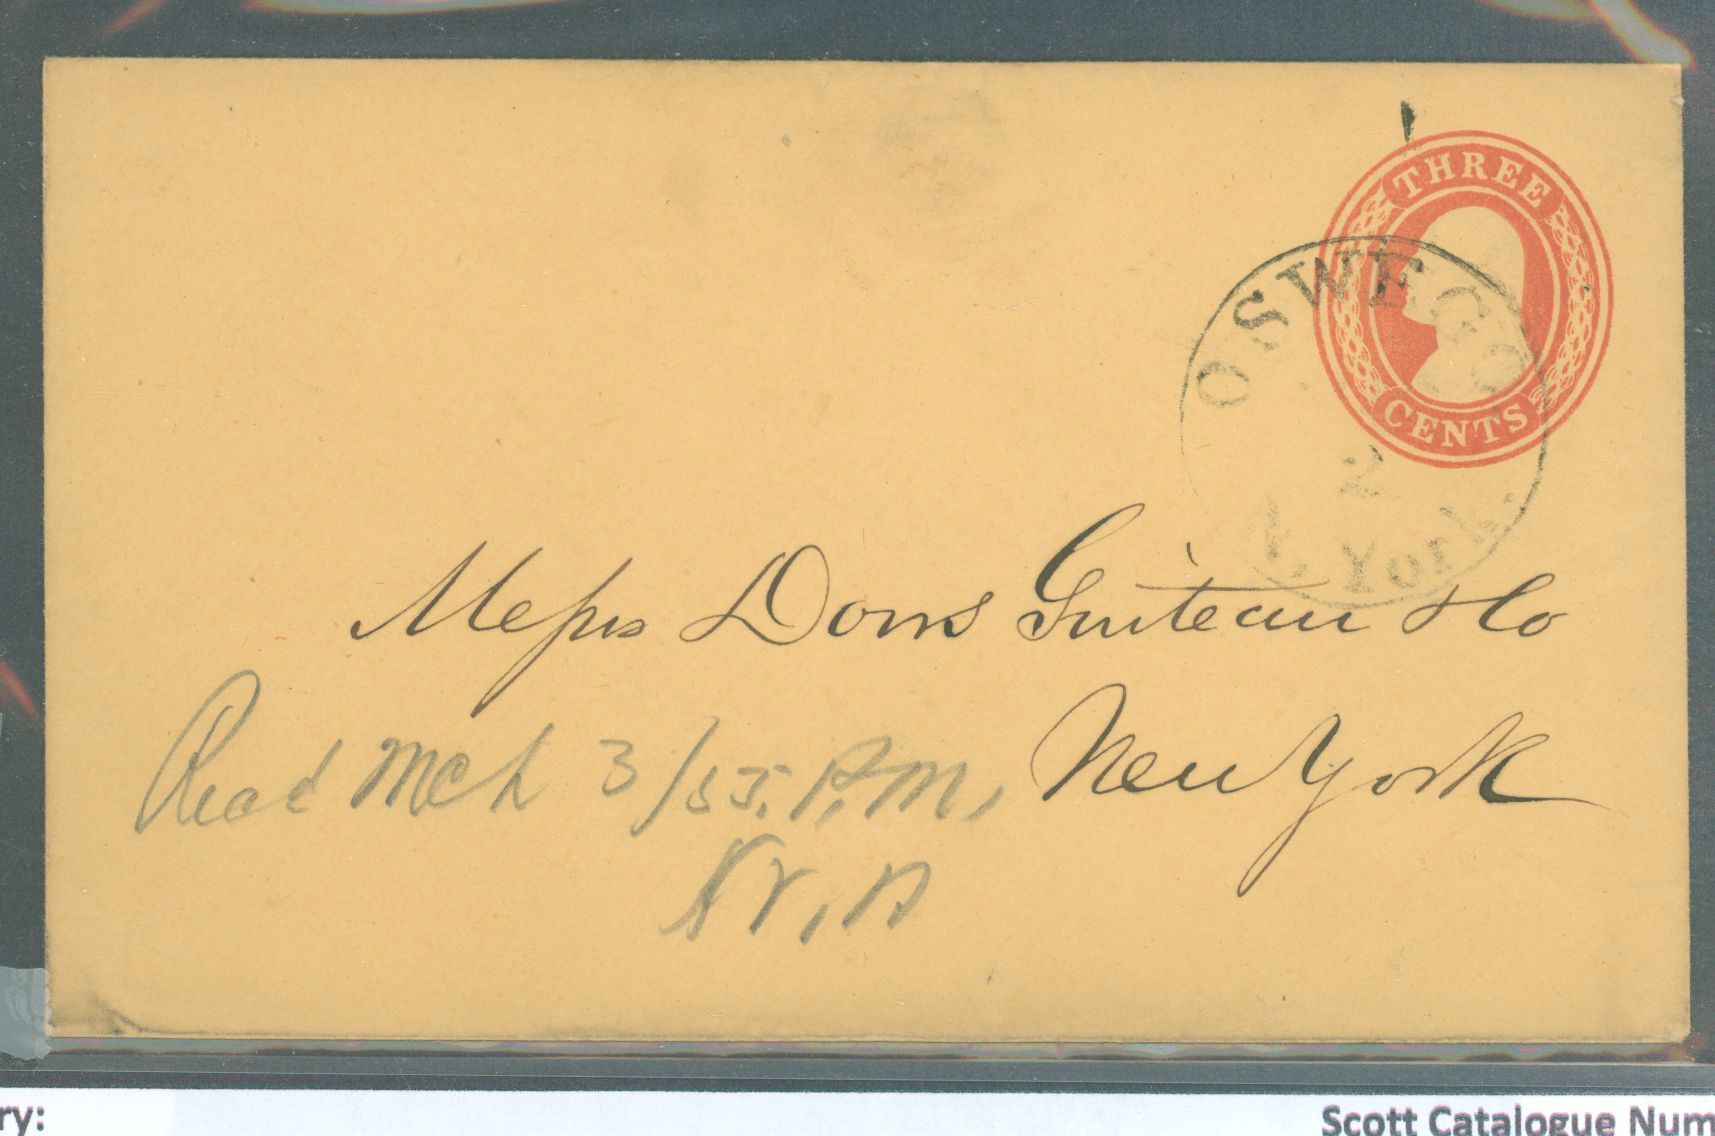 THREE
CENTS
OSWEGO
2
N. York.
Messrs Dows Guiteau & Co
New York
Recd Mch 3/55. P.M,
ry:
Scott Catalogue Num